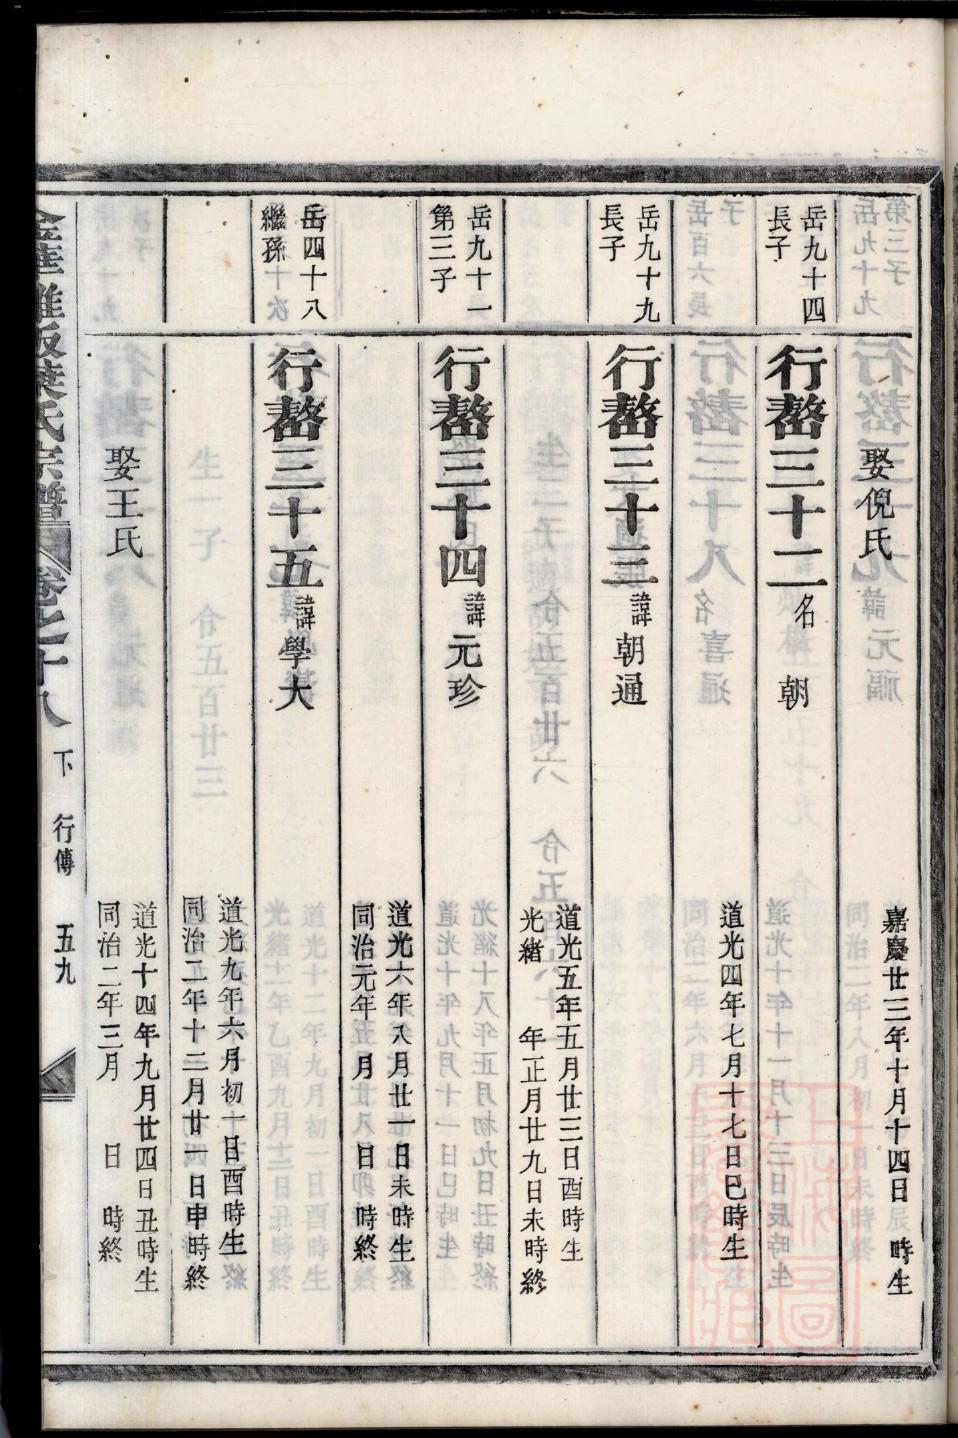 娶倪氏
嘉慶廿三年十月十四日 時生
岳九十四
長子
行嶅三十二名 朝
道光四年七月十七日巳時生
岳九十九
長子
行嶅三十三諱朝通
道光五年五月廿三日酉時生
光緒 年正月廿九日未時終
岳九十一
第三子
行嶅三十四諱元珍
道光六年八月廿一日未時生
同治元年 月 日 時終
岳四十八
繼孫
行嶅三十五諱學大
道光九年六月初一日酉時生
同治二年十二月廿一日申時終
娶王氏
道光十四年九月廿四日丑時生
同治二年三月 日 時終
葉氏宗譜 卷之十八 下 行傳 五九